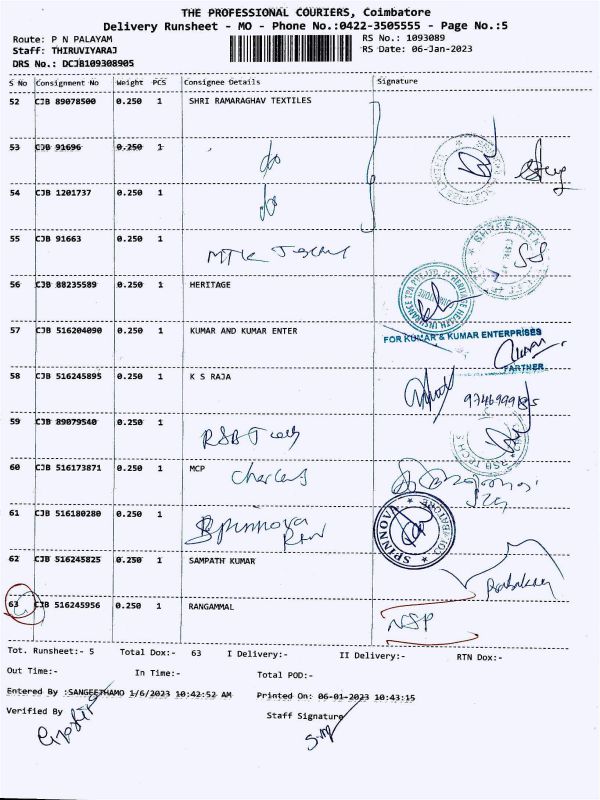 THE PROFESSIONAL COURIERS, Coimbatore
Delivery Runsheet - MO - Phone No.:0422-3505555 - Page No.:5
Route: P N PALAYAM
RS No.: 1093089
Staff: THIRUVIYARAJ
RS Date: 06-Jan-2023
DRS No.: DCJB109308905
S No Consignment No Weight PCS Consignee Details Signature
52 CJB 89078500 0.250 1 SHRI RAMARAGHAV TEXTILES
53 CJB 91696 0.250 1 do
54 CJB 1201737 0.250 1 do
55 CJB 91663 0.250 1 MTK
56 CJB 88235589 0.250 1 HERITAGE
57 CJB 516204090 0.250 1 KUMAR AND KUMAR ENTER
FOR KUMAR & KUMAR ENTERPRISES
PARTNER
58 CJB 516245895 0.250 1 K S RAJA
59 CJB 89079540 0.250 1 RSB Tech
60 CJB 516173871 0.250 1 MCP Charles
61 CJB 516180280 0.250 1 Spinnova
SPINNOVA
62 CJB 516245825 0.250 1 SAMPATH KUMAR
Prabakaran
63 CJB 516245956 0.250 1 RANGAMMAL
NSP
Tot. Runsheet:- 5 Total Dox:- 63 I Delivery:- II Delivery:- RTN Dox:-
Out Time:- In Time:- Total POD:-
Entered By :SANGEETHAMO 1/6/2023 10:42:52 AM Printed On: 06-01-2023 10:43:15
Verified By
Staff Signature